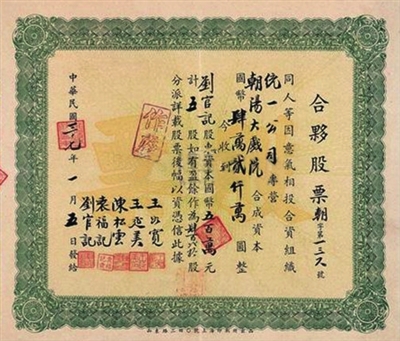 合夥股票 朝字第一三九號
同人等因意氣相投合資組織
統一公司專營
朝陽大戲院合成資本
國幣肆萬貳仟萬圓整
今收到
劉官記股東資本國幣五百萬元
計五股如有盈餘作為
股
分派詳載股票後幅以資憑信此據
作廢
王必寬
王延美
陳松雲
袁福記
劉官記
中華民國三九年一月五日發給